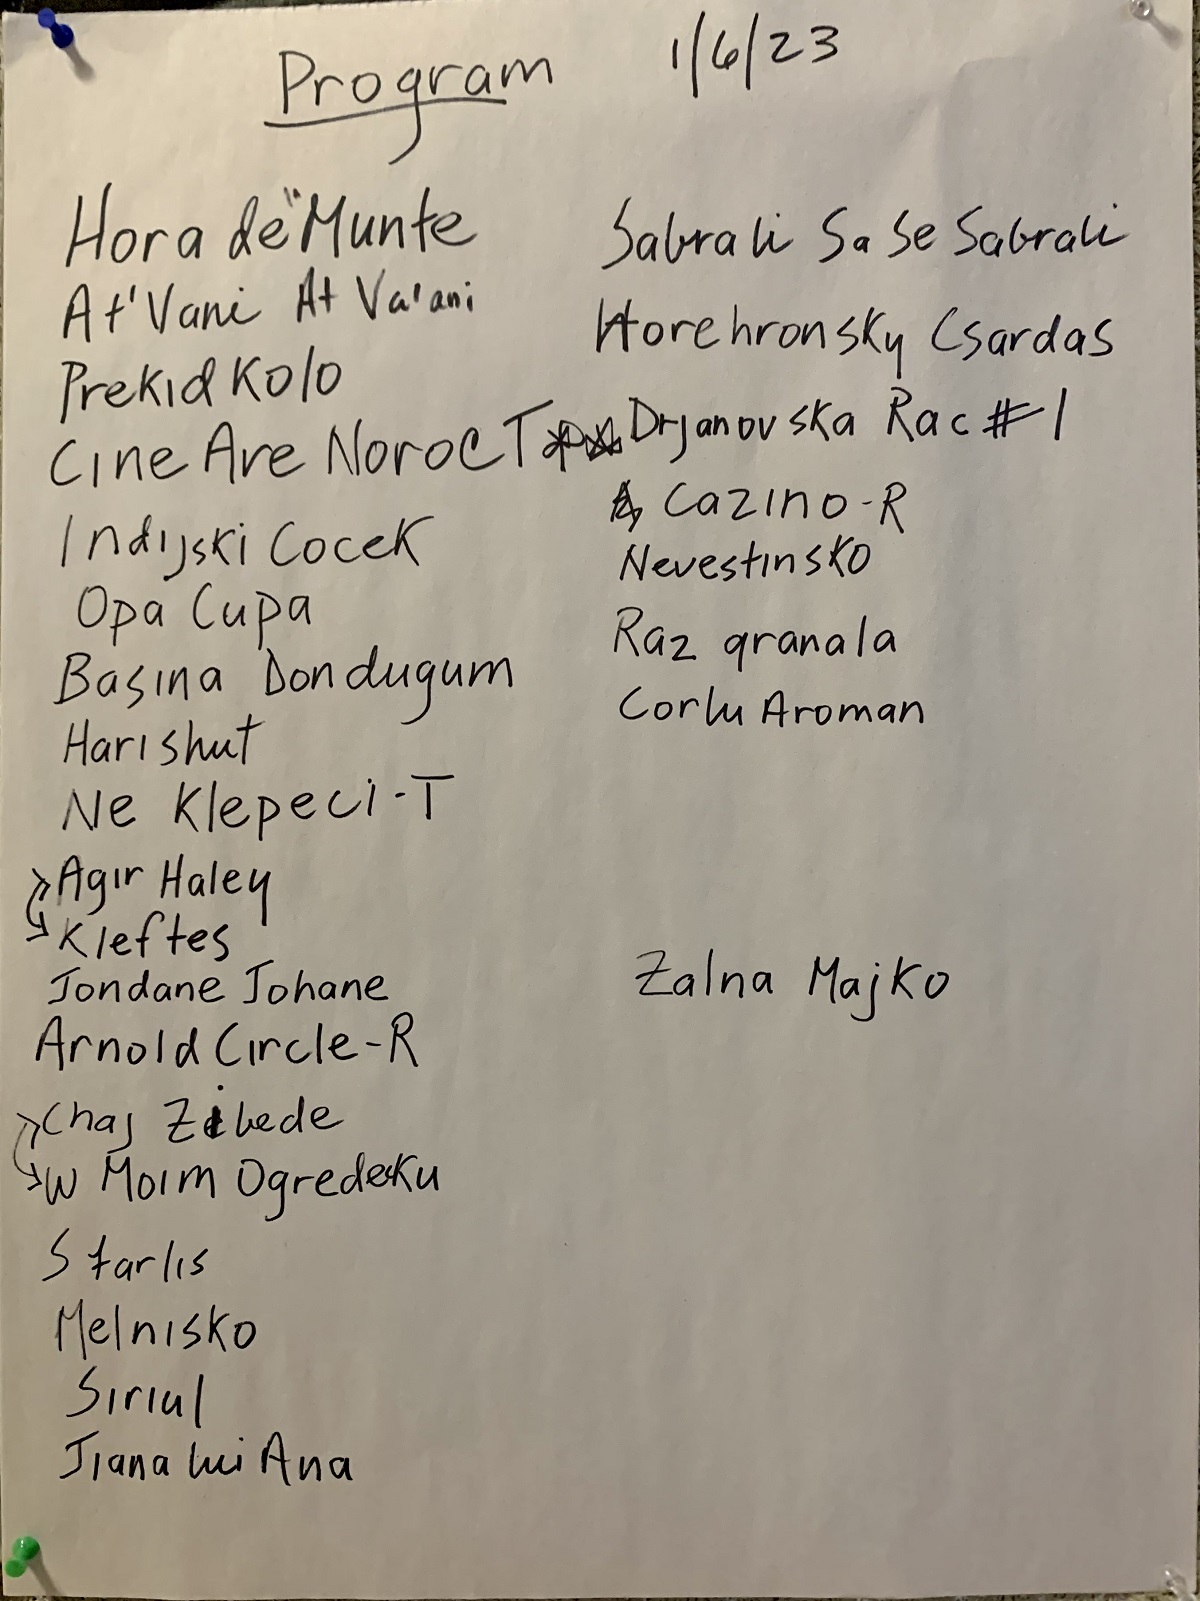 Program 1/6/23
Hora de "Munte
At' Vani At Va'ani
Prekid Kolo
Cine Are Noroc T
Indijski Cocek
Opa Cupa
Basina Dondugum
Harishut
Ne Klepeci-T
Agir Haley
Kleftes
Jondane Johane
Arnold Circle-R
Chaj Zibede
W Moim Ogredeku
Starlis
Melnisko
Siriul
Jiana lui Ana
Sabrali Sa Se Sabrali
Horehronsky Csardas
Drjanovska Rac #1
Cazino-R
Nevestinsko
Raz granala
Corlu Aroman
Zalna Majko